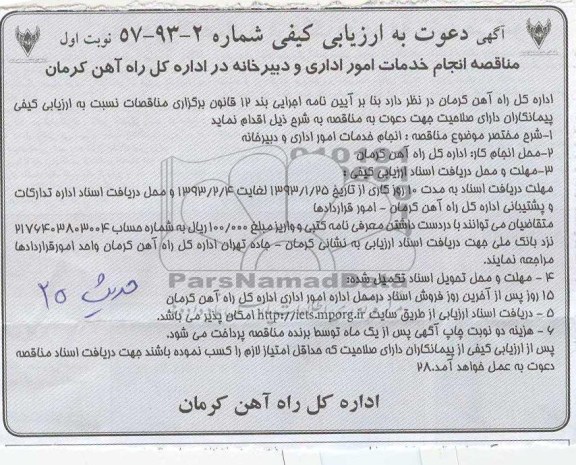 آگهی دعوت به ارزیابی کیفی شماره ۲-۹۳-۵۷ نوبت اول
مناقصه انجام خدمات امور اداری و دبیرخانه در اداره کل راه آهن کرمان
اداره کل راه آهن کرمان در نظر دارد بنا بر آیین نامه اجرایی بند ۱۲ قانون برگزاری مناقصات نسبت به ارزیابی کیفی
پیمانکاران دارای صلاحیت جهت دعوت به مناقصه به شرح ذیل اقدام نماید
۱-شرح مختصر موضوع مناقصه : انجام خدمات امور اداری و دبیرخانه
۲-محل انجام کار: اداره کل راه آهن کرمان
۳-مهلت و محل دریافت اسناد ارزیابی کیفی :
مهلت دریافت اسناد به مدت ۱۰ روز کاری از تاریخ ۱۳۹۳/۱/۲۵ لغایت ۱۳۹۳/۲/۴ و محل دریافت اسناد اداره تدارکات
و پشتیبانی اداره کل راه آهن کرمان - امور قراردادها
متقاضیان می توانند با در دست داشتن معرفی نامه کتبی و واریز مبلغ ۱۰۰/۰۰۰ ریال به شماره حساب ۲۱۷۶۴۰۳۸۰۳۰۰۴
نزد بانک ملی جهت دریافت اسناد ارزیابی به نشانی کرمان - جاده تهران اداره کل راه آهن کرمان واحد امور قراردادها
مراجعه نمایند.
ParsNamadData
۴ - مهلت و محل تحویل اسناد تکمیل شده:
حدیث ۲۵
۱۵ روز پس از آخرین روز فروش اسناد در محل اداره امور اداری اداره کل راه آهن کرمان
۵ - دریافت اسناد ارزیابی از طریق سایت http://iets.mporg.ir امکان پذیر می باشد.
۶ - هزینه دو نوبت چاپ آگهی پس از یک ماه توسط برنده مناقصه پرداخت می شود.
پس از ارزیابی کیفی از پیمانکاران دارای صلاحیت که حداقل امتیاز لازم را کسب نموده باشند جهت دریافت اسناد مناقصه
دعوت به عمل خواهد آمد.۲۸
اداره کل راه آهن کرمان